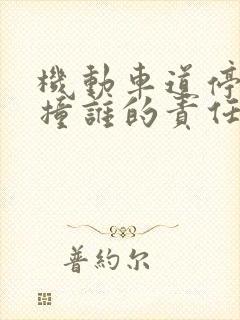 機動車道停
撞誰的責任
普約尔